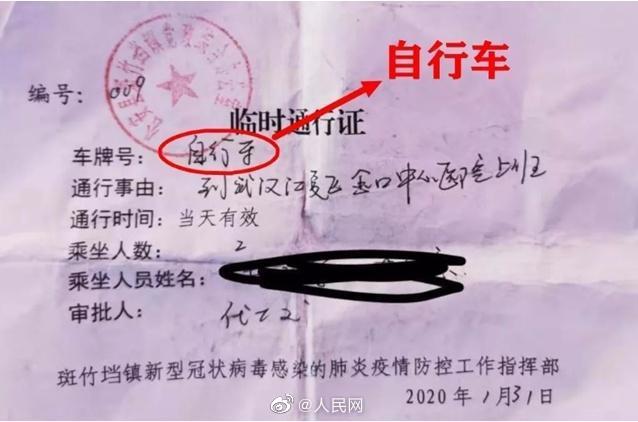 自行车
编号：009
临时通行证
车牌号：自行车
通行事由：到武汉江夏区金口中心医院上班
通行时间：当天有效
乘坐人数：2
乘坐人员姓名：
审批人：
斑竹垱镇新型冠状病毒感染的肺炎疫情防控工作指挥部
2020年1月31日
@人民网